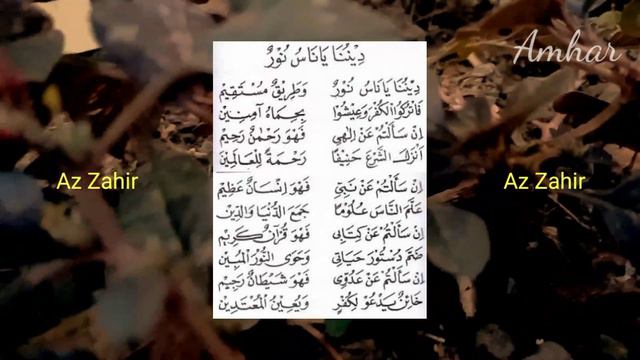 Amhar
دِيْنُنَا يَانَاسُ نُوْرٌ
دِيْنُنَا يَانَاسُ نُوْرٌ وَطَرِيْقٌ مُسْتَقِيْمٌ
فَاتْرُكُوا الْكُفْرَ وَعِيْشُوْا بِحِمَاهُ آمِنِيْنَ
اِنْ سَأَلْتُمْ عَنْ اِلٰهِيْ فَهُوَ رَحْمٰنٌ رَحِيْمٌ
اَنْزَلَ الشَّرْعَ حَنِيْفًا رَحْمَةً لِلْعَالَمِيْنَ
Az Zahir
Az Zahir
اِنْ سَأَلْتُمْ عَنْ نَبِيِّ فَهُوَ اِنْسَانٌ عَظِيْمٌ
عَلَّمَ النَّاسَ عُلُوْمًا جَمَعَ الدُّنْيَا وَالدِّيْنَ
اِنْ سَأَلْتُمْ عَنْ كِتَابِيْ فَهُوَ قُرْآنٌ كَرِيْمٌ
ضَمَّ دُسْتُوْرَ حَيَاتِيْ وَحَوَى النُّوْرَ الْمُبِيْنَ
اِنْ سَأَلْتُمْ عَنْ عَدُوِّيْ فَهُوَ شَيْطَانٌ رَجِيْمٌ
خَائِنٌ يَدْعُوْ لِكُفْرٍ وَيُعِيْنُ الْمُعْتَدِيْنَ